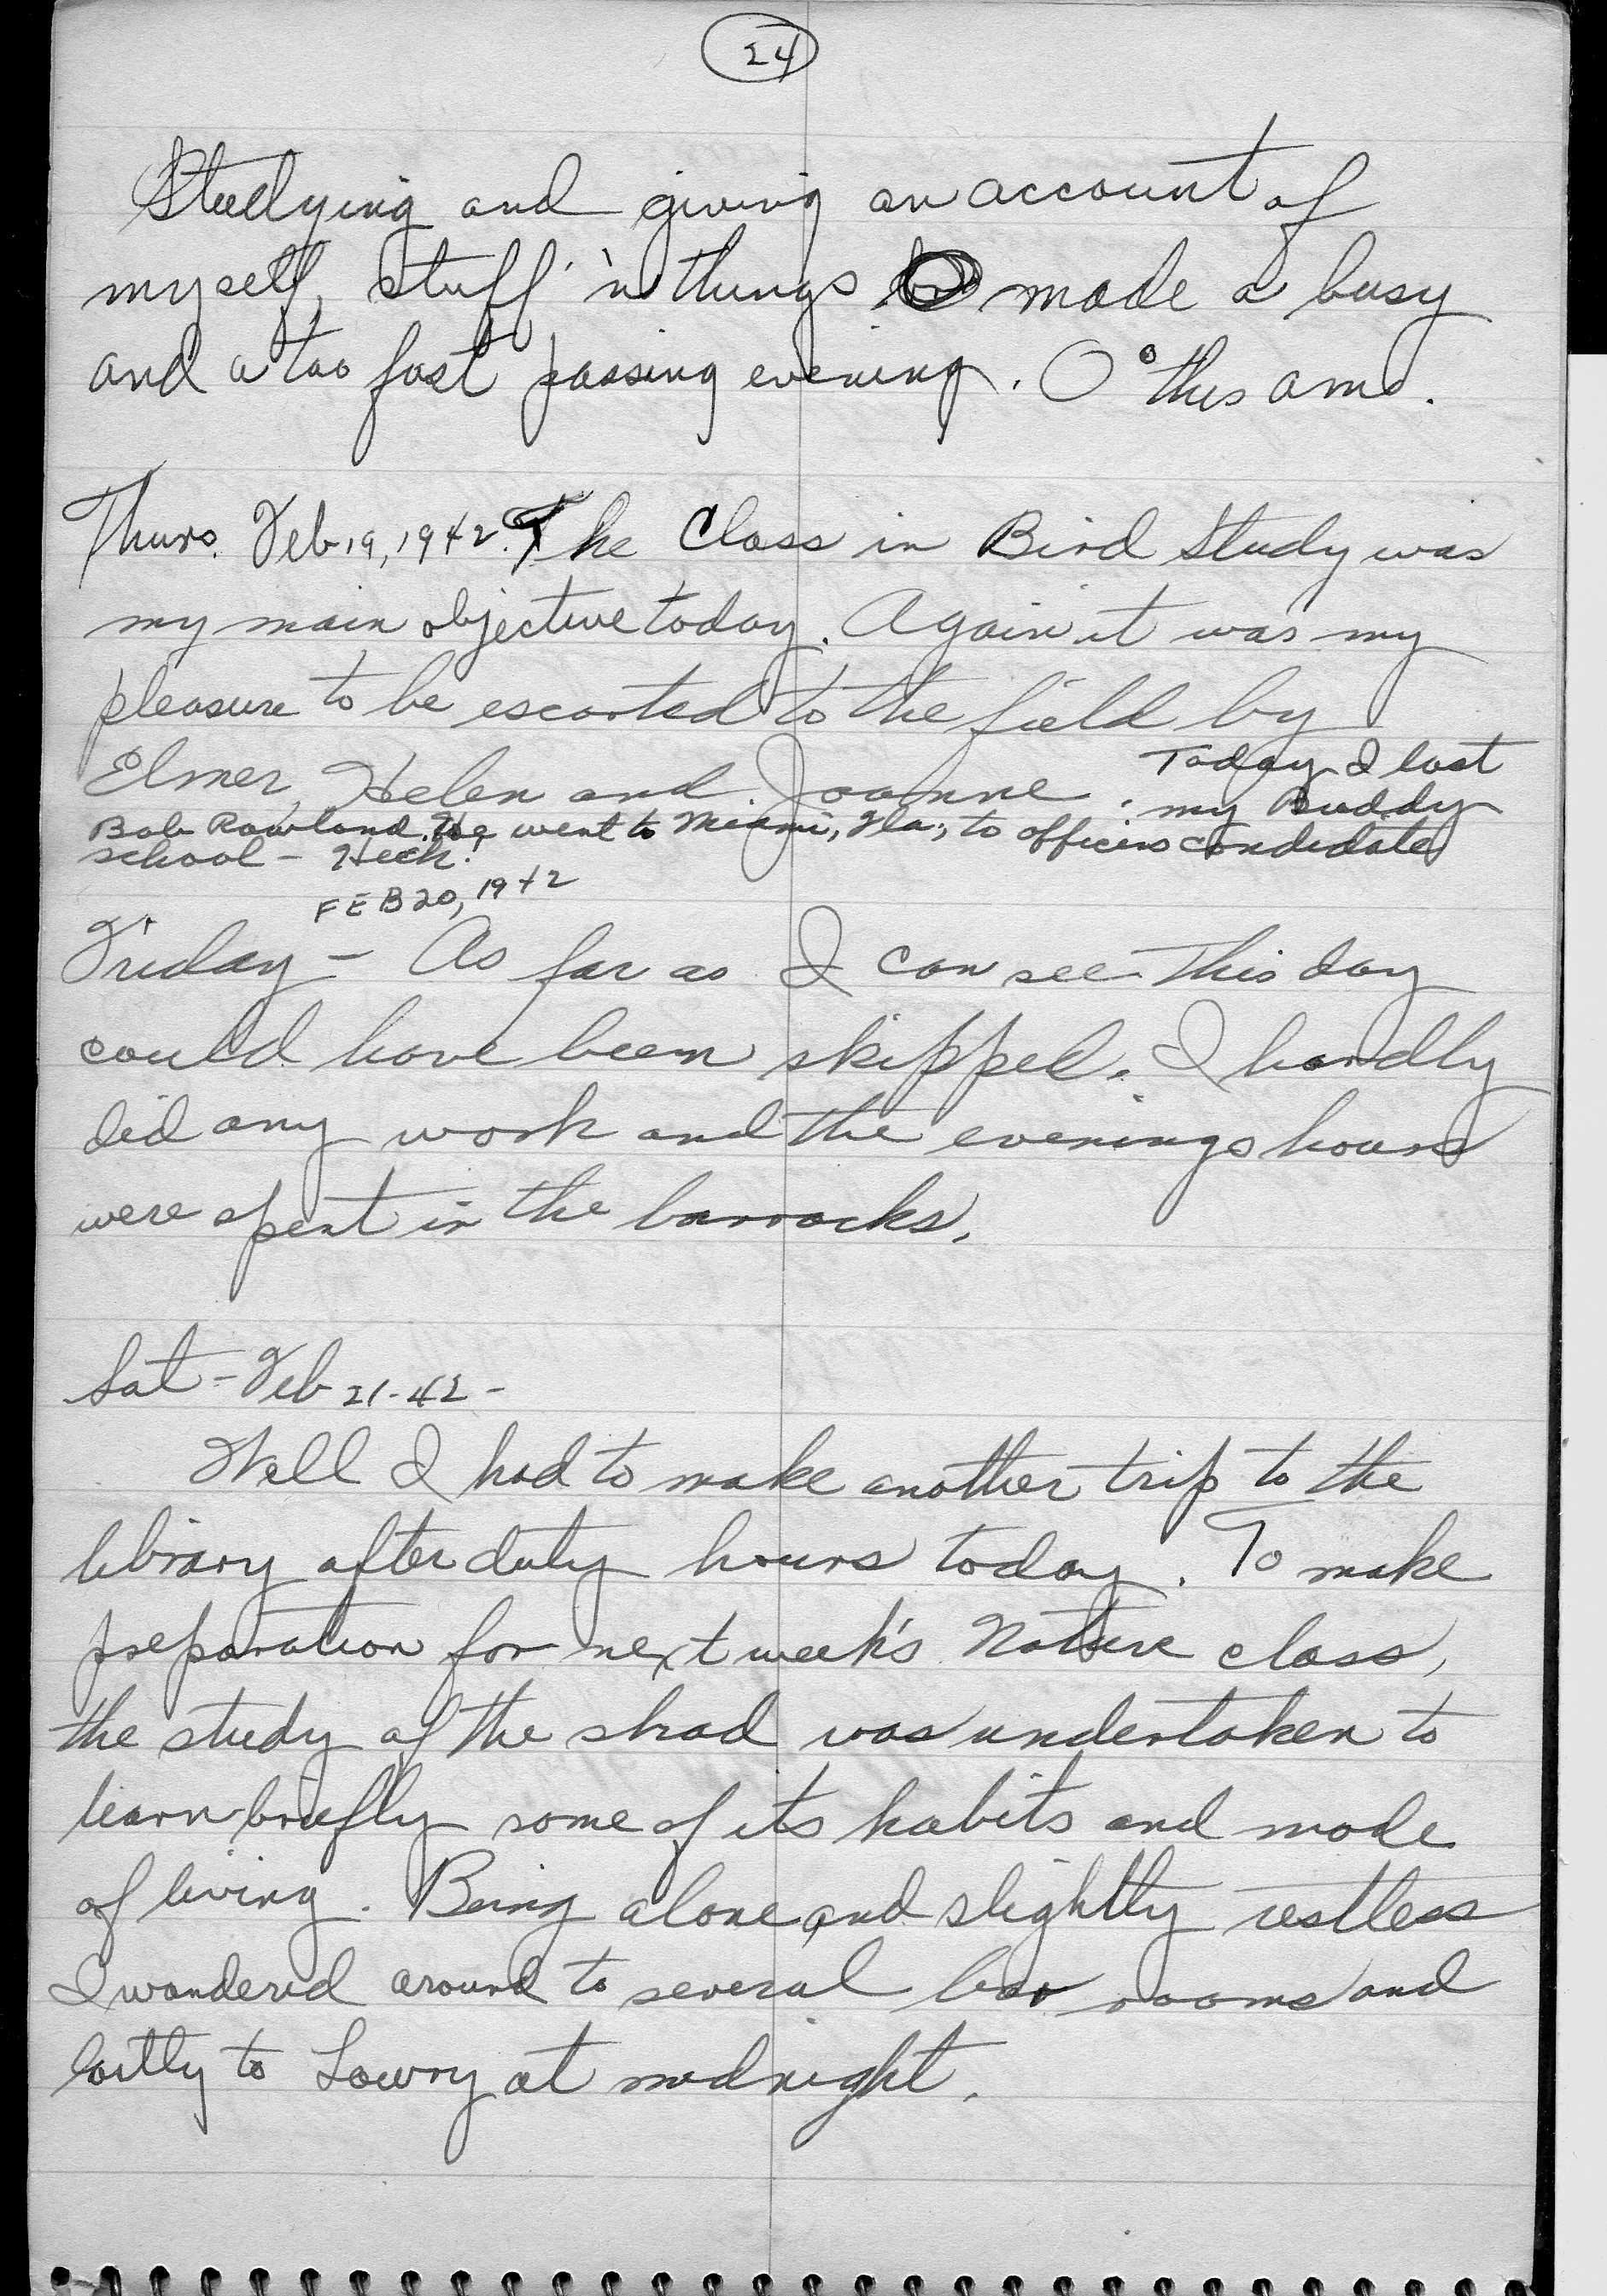 24
Studying and giving an account of
myself, stuff 'n things made a busy
and a too fast passing evening. 0° this am.
Thurs. Feb 19, 1942. The Class in Bird Study was
my main objective today. Again it was my
pleasure to be escorted to the field by
Elmer, Helen and Joanne. Today I lost
my Buddy
Bob Rowland. He went to Miami, Fla., to officers candidate
school - Heck!
FEB 20, 1942
Friday - As far as I can see this day
could have been skipped. I hardly
did any work and the evenings hours
were spent in the barracks.
Sat - Feb 21-42 -
Well I had to make another trip to the
library after duty hours today. To make
preparation for next week's Nature class,
the study of the shad was undertaken to
learn briefly some of its habits and mode
of living. Being alone and slightly restless
I wandered around to several bar rooms and
lastly to Lowry at midnight.